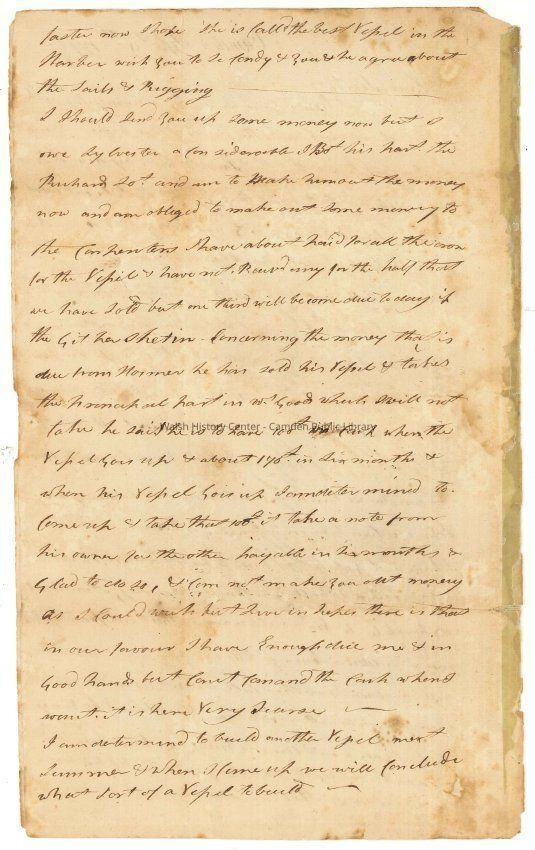 faster now I hope she is Calld the best Vessel in the
Harber wish you to Se Cendy & you & he agree about
the Sails & Rigging
I Should Send you up Some money now but I
owe Sylvester a Considerable I Bot his part the
Richard So.t and am to make him out the money
now and am obliged to make out Some money to
the Carpenters I have about paid for all the iron
for the Vessel & have not Recvd any for the half that
we have Sold but one third will become due to day if
the Git her Shetin - Concerning the money that is
due from Hormer he has sold his Vessel & takes
the principal part in W. Good which I will not
take he says he is to have 100 Cash when the
Vessel Gois up & about 170 in Six months &
when his Vessel Gois up I am determind to
Come up & take that 100 & take a note from
his owner for the other payable in six months &
Glad to do so, & Can not make you out money
as I Could wish but live in hopes there is that
in our favour I have Enough due me & in
Good hands but Cant Comand the Cash when I
want it is here Very Scarse
I am determind to build another Vessel next
Summer & when I Come up we will Conclude
what Sort of a Vessel to build
Walsh History Center - Camden Public Library